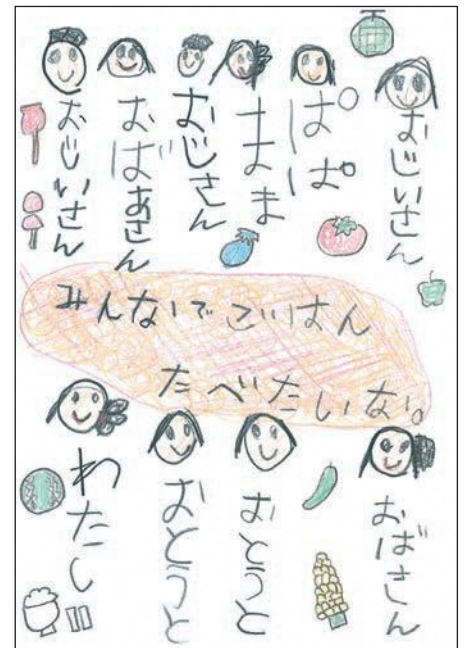 おじいさん
ぱぱ
まま
おじさん
おばあさん
おじいさん
みんなでごはん
たべたいな。
おばさん
おとうと
おとうと
わたし